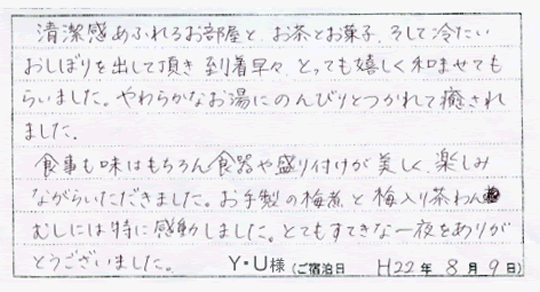 清潔感あふれるお部屋と、お茶とお菓子、そして冷たい
おしぼりを出して頂き 到着早々、とっても嬉しく和ませても
らいました。やわらかなお湯にのんびりとつかれて癒され
ました。
食事も味はもちろん食器や盛り付けが美しく、楽しみ
ながらいただきました。お手製の梅煮と梅入り茶わん
むしには特に感動しました。とてもすてきな一夜をありが
とうございました。 Y・U様 (ご宿泊日 H22年 8月 9日)